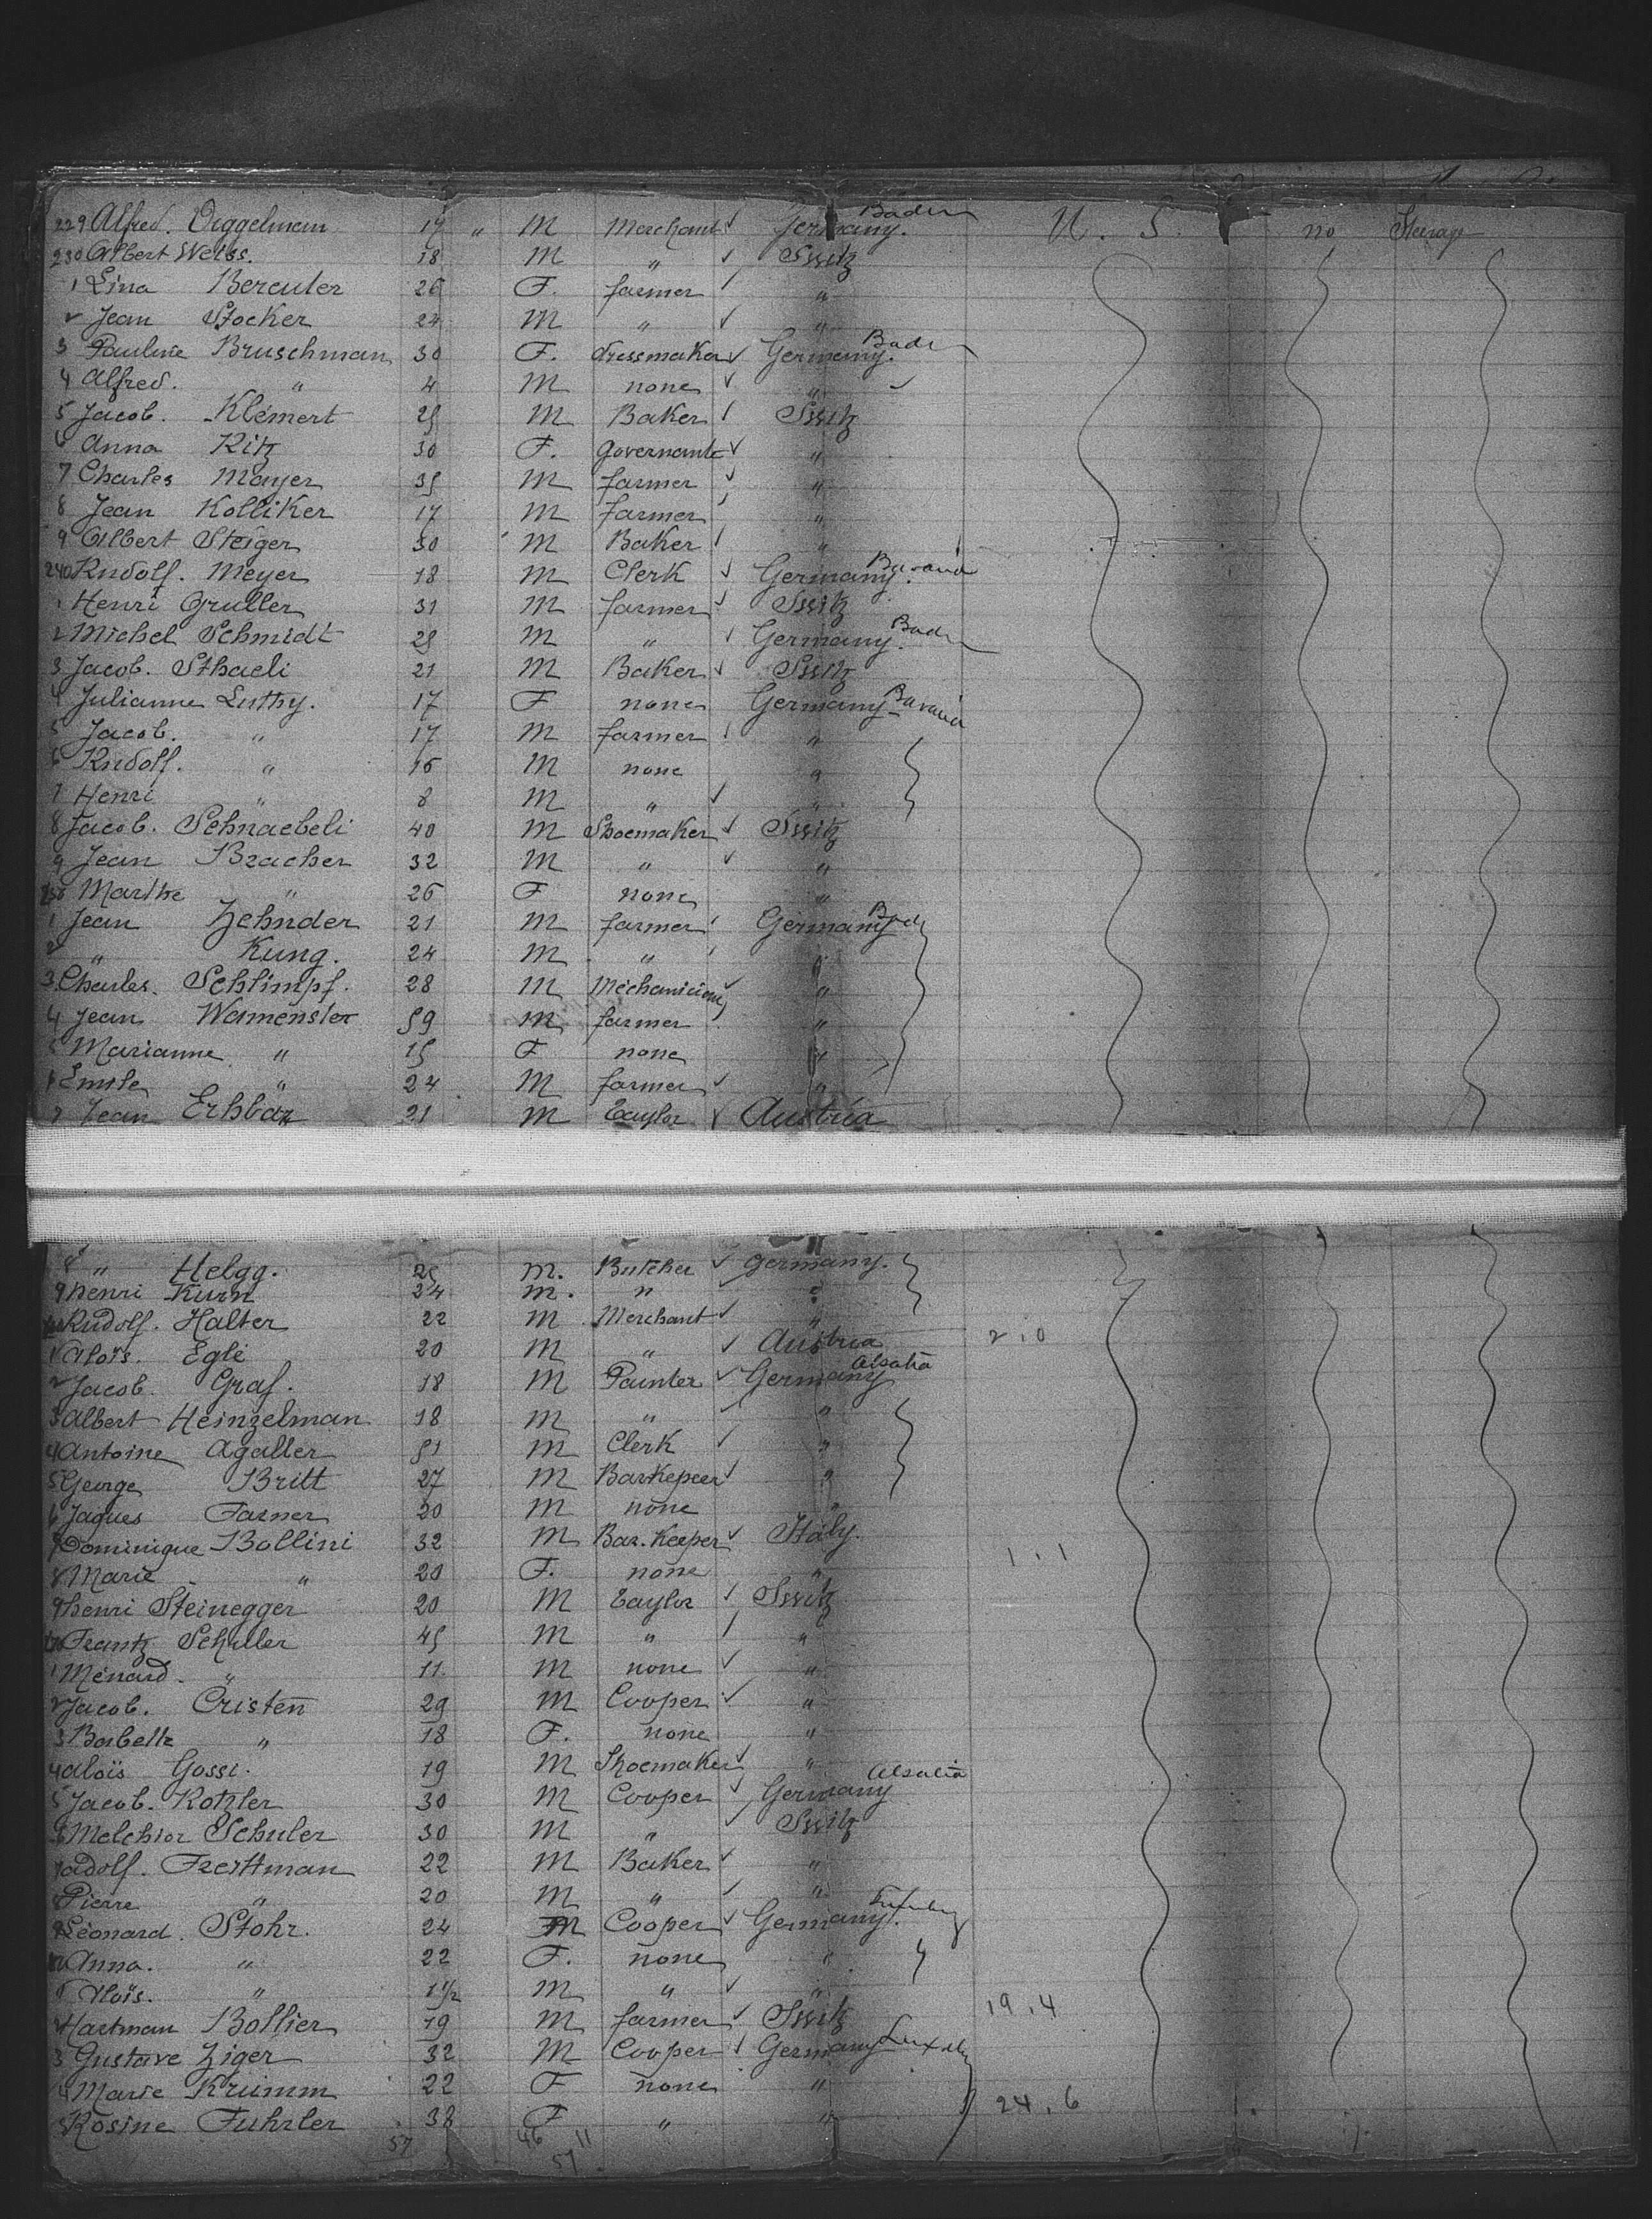 229 Alfred. Oiggelmem 17 " M Merchant ✓ Germany. Baden U. S. no Steerage
230 Albert Weiss. 18 M " ✓ Switz
1 Lina Bercuter 26 F. farmer ✓ "
2 Jean Stocker 24 M " ✓ "
3 Pauline Bruschman 30 F. dressmaker ✓ Germany. Baden
4 Alfred. " 4 M none ✓ "
5 Jacob. Klémert 25 M Baker ✓ Switz
6 Anna Kitz 30 F. governante ✓ "
7 Charles Mayer 35 M farmer ✓ "
8 Jean Kolliker 17 M farmer ✓ "
9 Albert Steiger 30 M Baker ✓ "
240 Rudolf. Meyer 18 M Clerk ✓ Germany. Bavaria
1 Henri Gruller 31 M farmer ✓ Switz
2 Michel Schmidt 25 M " ✓ Germany. Bade
3 Jacob. Sthaeli 21 M Baker ✓ Switz
4 Julianne Luthy. 17 F none Germany Bavaria
5 Jacob. " 17 M farmer ✓ "
6 Rudolf. " 16 M none "
7 Henri " 8 M " ✓ "
8 Jacob. Schnaebeli 40 M Shoemaker ✓ Switz
9 Jean Bracher 32 M " ✓ "
250 Marthe " 26 F none "
1 Jean Zehnder 21 M farmer ✓ Germany Bade
2 " Kung. 24 M " ✓ "
3 Charles. Schlimpf. 28 M Mechanician ✓ "
4 Jean Wamenster 59 M farmer "
5 Marianne " 15 F none "
6 Emile " 24 M farmer ✓ "
7 Jean Erhbar 21 M Taylor ✓ Austria
8 " Helgg. 25 M. Butcher ✓ Germany.
9 henri Kurn 24 M. " ✓ "
Rudolf. Halter 22 M Merchant ✓ "
1 Aloïs. Egli 20 M " ✓ Austria 2.0
2 Jacob. Graf. 18 M Painter ✓ Germany Alsatia
3 Albert Heinzelman 18 M " ✓ "
4 Antoine Agaller 51 M Clerk ✓ "
5 George Britt 27 M Barkepeer ✓ "
6 Jaques Farner 20 M none
7 Dominique Bollini 32 M Bar. Keeper ✓ Italy. 1.1
8 Marie " 20 F. none "
9 henri Steinegger 20 M Taylor ✓ Switz
Frantz Schuller 45 M " ✓ "
1 Ménard. " 11 M none ✓ "
2 Jacob. Cristen 29 M Cooper ✓ "
3 Barbette " 18 F. none "
4 aloïs Gossi. 19 M Shoemaker ✓ "
5 Jacob. Kohler 30 M Cooper ✓ Germany Alsatia
Melchior Schuler 30 M " ✓ Switz
adolf. Frettman 22 M Baker ✓ "
Pierre " 20 M " ✓ "
Léonard. Stohr. 24 M Cooper ✓ Germany.
Anna. " 22 F. none "
Aloïs. " 1 1/2 M " ✓ "
Hartman Bollier 19 M farmer ✓ Switz 19.4
3 Gustave Ziger 32 M Cooper ✓ Germany
4 Marie Krumm 22 F none "
5 Rosine Fuhrler 38 F " " 24.6
57 46 11
57